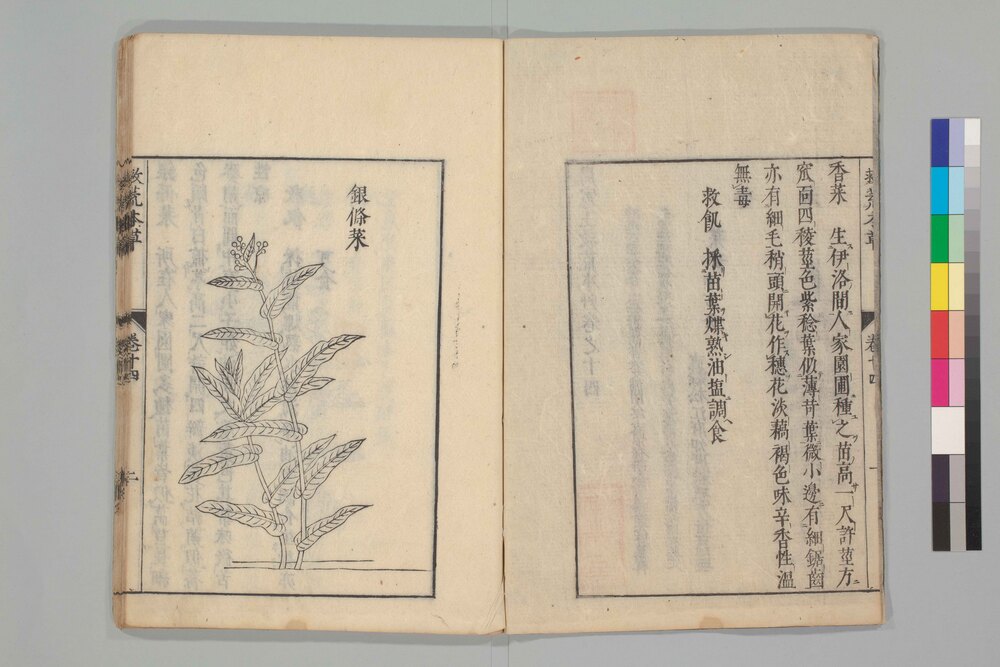 香菜　生伊洛間人家園圃種之苗高一尺許莖方
窊面四稜莖色紫稔葉似薄苛葉微小邊有細鋸齒
亦有細毛稍頭開花作穗花淡藕褐色味辛香性溫
無毒
救飢　採苗葉煠熟油塩調食
銀條菜
救荒本草
卷十四